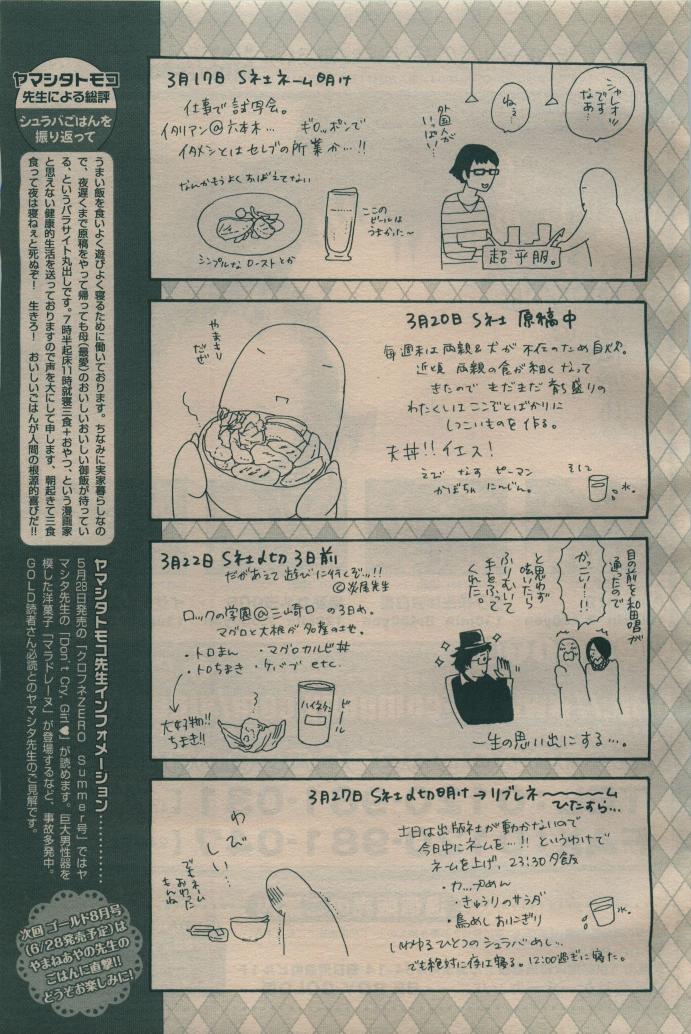 ヤマシタトモコ
先生による総評
シュラバごはんを
振り返って
うまい飯を食いよく遊びよく寝るために働いております。ちなみに実家暮らしなの
で、夜遅くまで原稿をやって帰っても母(最愛)のおいしいおいしい御飯が待ってい
る、というパラサイト丸出しです。7時半起床11時就寝三食+おやつ、という漫画家
と思えない健康的生活を送っておりますので声を大にして申します、朝起きて三食
食って夜は寝ねぇと死ぬぞ! 生きろ! おいしいごはんが人間の根源的喜びだ!!
3月17日 S社ネーム明け
仕事で試写会。
イタリアン@六本木… ギロッポンで
イタメシとはセレブの所業か…!!
なんかもうよくおぼえてない
シンプルなローストとか
ここの
ビールは
うまかった〜
外国人が
いっぱい…
ねぇ
シャレオツ
ですな
あ
超平服。
3月20日 S社 原稿中
毎週末は両親&犬が不在のため自炊。
近頃両親の食が細くなって
きたのでまだまだ育ち盛りの
わたくしはここぞとばかりに
しつこいものを作る。
天丼!! イエス!
えび なす ピーマン
かぼちゃ にんじん。
そして
水。
やまもり
だぜ
3月22日 S社〆切3日前
だがあえて遊びに行くぞ…!!
©炎尾先生
ロックの学園@三崎口の3日め。
マグロと大根が名産の土地。
・トロまん ・マグロカルビ丼
・トロちまき ・ケバブ etc.
大好物!!
ちまき!!
ハイネケン
ビール
目の前を和田唱が
通ったので
かっこいー…!!
と思わず
呟いたら
ふりむいて
手をふって
くれた。
一生の思い出にする…。
3月27日 S社〆切明け→リブレネーーーム
ひたすら…
土日は出版社が動かないので
今日中にネームを…!! というわけで
ネームを上げ、23:30夕飯
・カップめん
・きゅうりのサラダ
・鳥めしおにぎり
水。
いわゆるひとつのシュラバめし…
でも絶対に夜は寝る。12:00過ぎに寝た。
わびしい…
でもネーム
おわった
もんね
ヤマシタトモコ先生インフォメーション…………
5月28日発売の「クロフネZERO Summer号」ではヤ
マシタ先生の「Don't Cry, Girl♥」が読めます。巨大男性器を
模した洋菓子「マラドレーヌ」が登場するなど、事故多発中。
GOLD読者さん必読とのヤマシタ先生のご見解です。
次回 ゴールド8月号
(6/28発売予定)は
やまねあやの先生の
ごはんに直撃!!
どうぞお楽しみに!